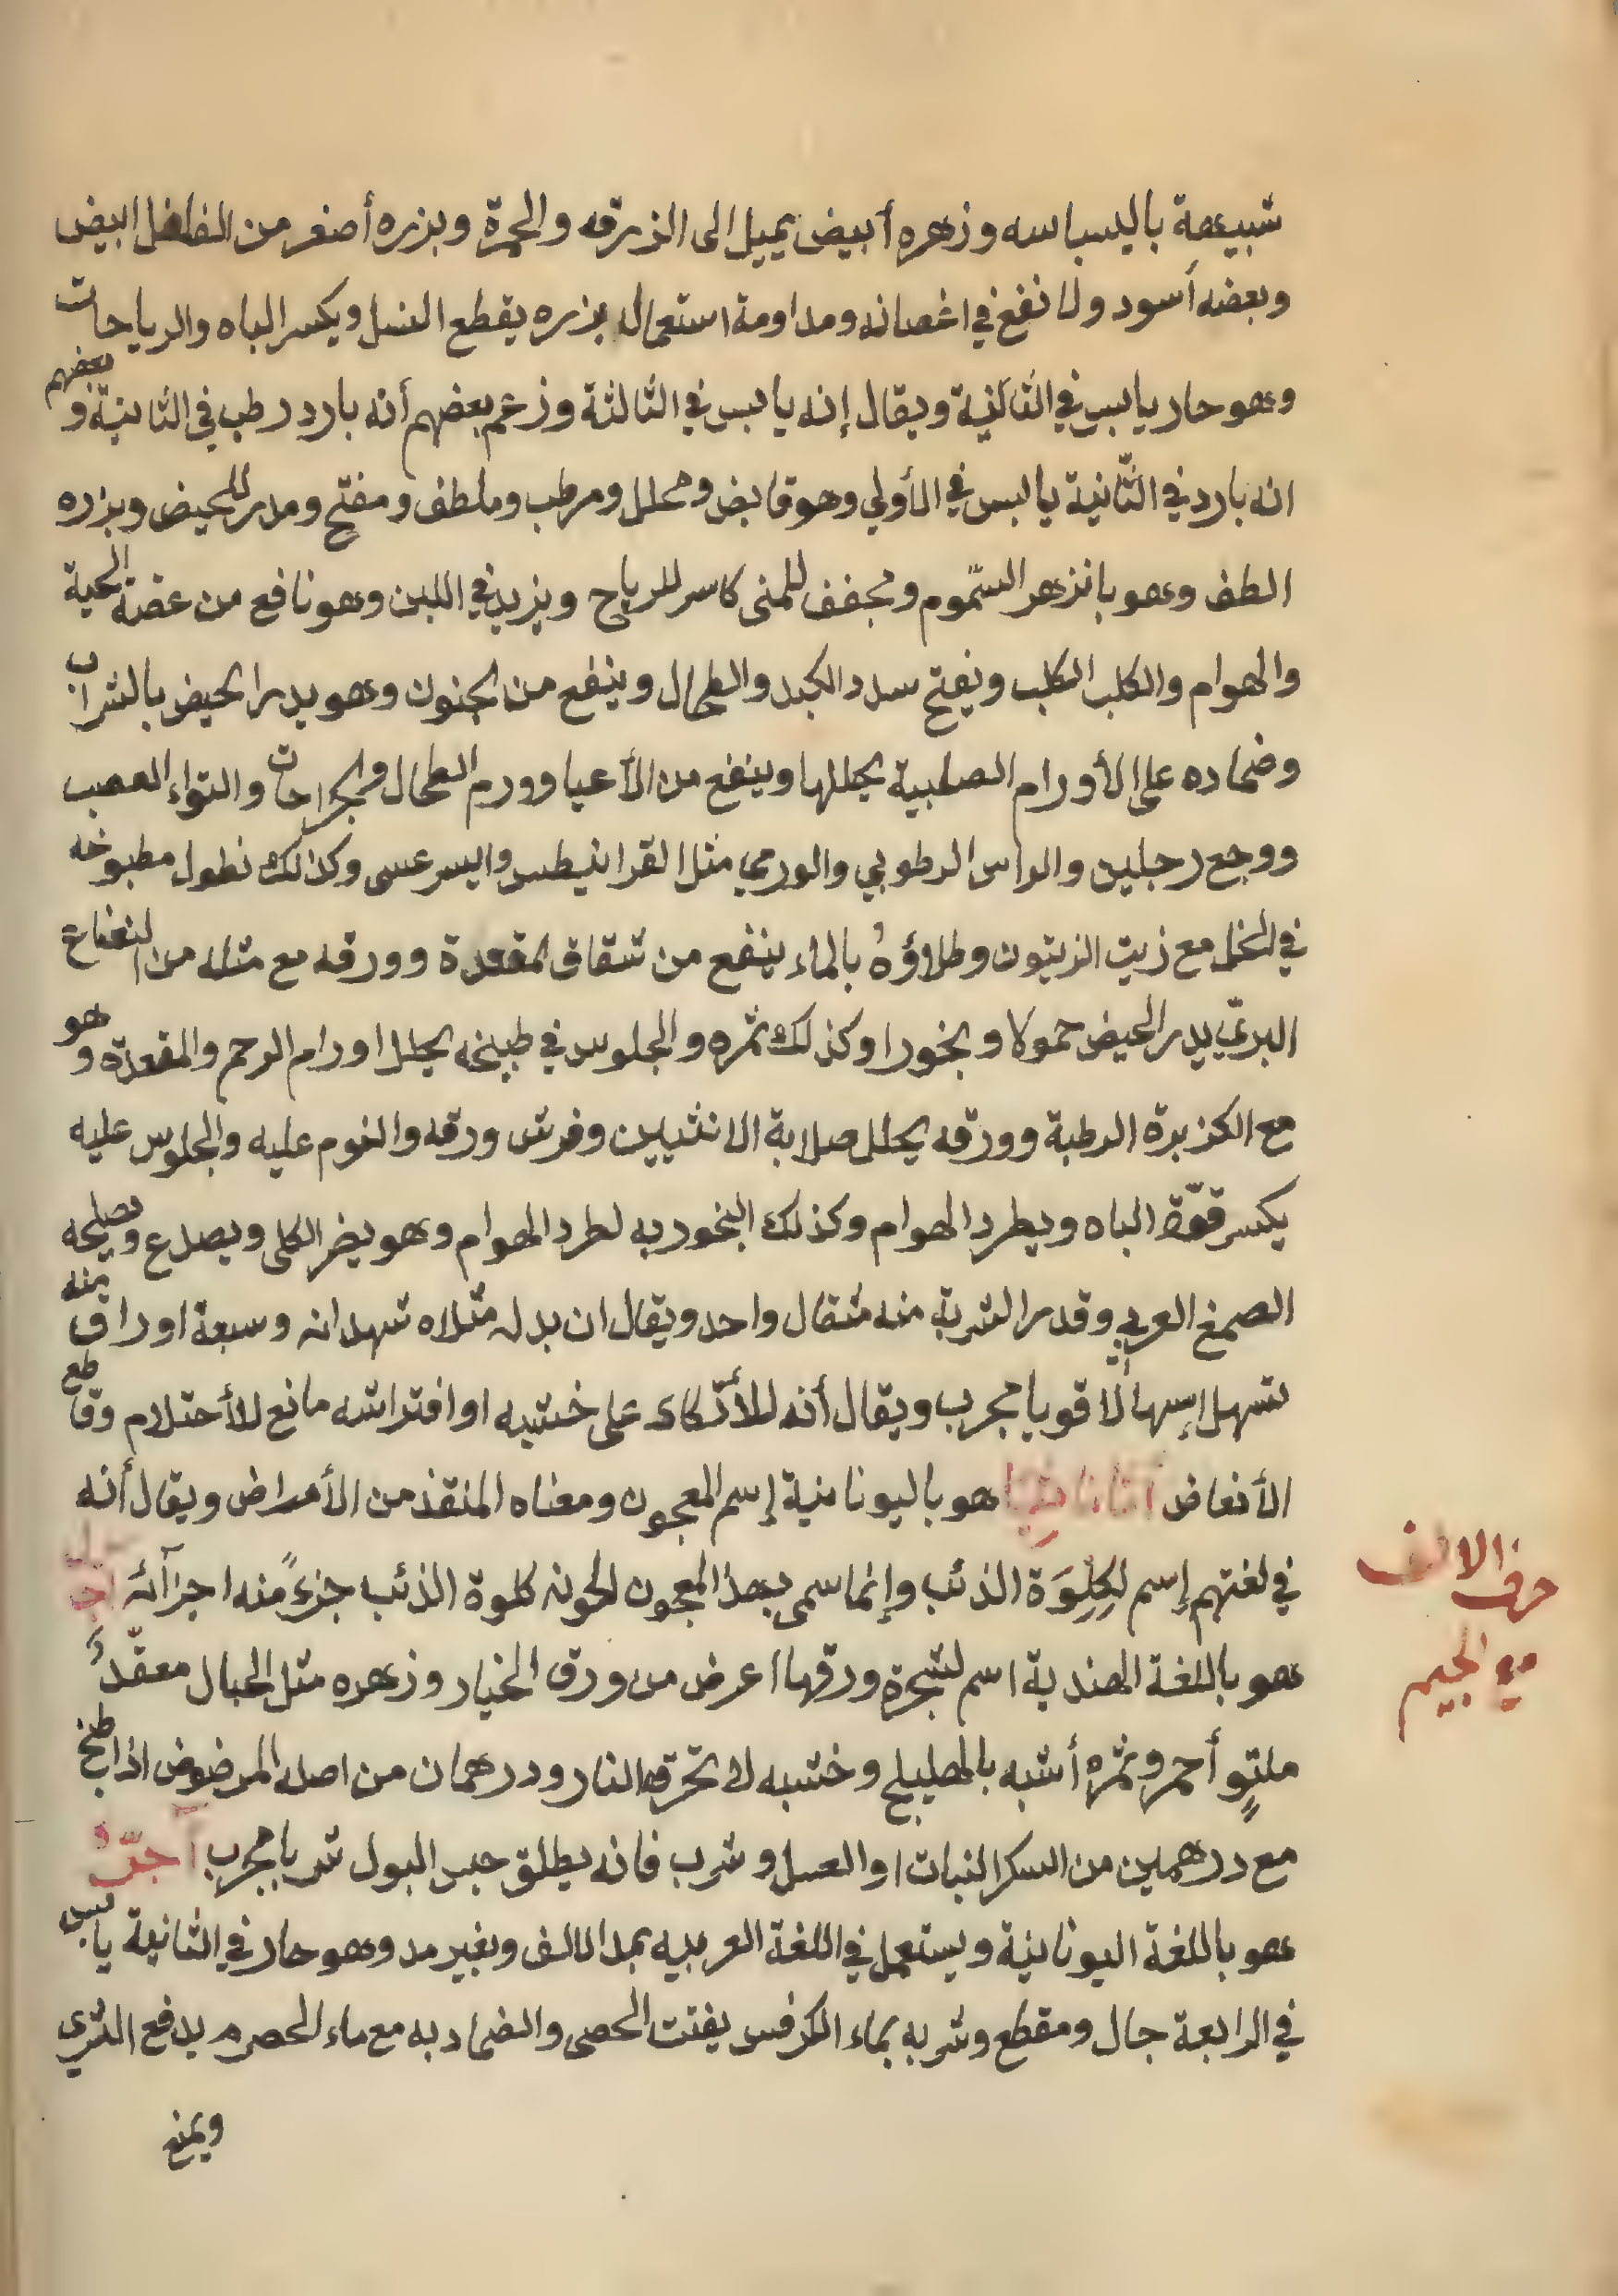 شبيهة باليسباسه وزهره أبيض يميل الى الذرقه والحمرة وبزره أصغر من الفلفل ابيض
وبعضه أسود ولا نفع في اغصانه ومداومة استعمال بزره يقطع النسل ويكسر الباه والرياحات
وهو حار يابس في الثالثية ويقال إنه يابس في الثالثة وزعم بعضهم أنه بارد رطب في الثانية وبعضهم
انه بارد في الثّانية يابس في الأولي وهو قابض ومحلل ومرطب وملطف ومفتح ومدر للحيض وبزره
الطف وهو بانزهر السّموم ومجفف للمنى كاسر للرياح ويزيد في اللبن وهو نافع من عضة الحية
والهوام والكلب الكلب ويفتح سدد الكبد والطحال وينفع من الجنون وهو يدر الحيض بالشراب
وضماده على الأورام الصلبية يحللها وينفع من الأعيا وورم الطحال والجراحات والتواء العصب
ووجع رجلين والراس الرطوبي والورمي مثل القرانيطس واليسرعسى وكذالك نطول مطبوخه
في الخل مع زيت الزيتون وطلاؤهُ بالماء ينفع من شقاق المقعدة وورقه مع مثله من النعناع
البريّ يدر الحيض حمولا وبخورا وكذلك ثمره والجلوس في طبيخه يحلل اورام الرحم والمقعدة وهو
مع الكزبرة الرطبة وورقه يحلل صلابة الانثيين وفرش ورقه والنوم عليه والجلوس عليه
يكسر قوّة الباه ويطرد الهوام وكذلك البخور به لطرد الهوام وهو يضر الكلى ويصدع ويصلحه
الصمغ العربي وقدر الشربة منه مثقال واحد ويقال ان بدله مثلاه شهدانه وسبعة اوراق منه
تسهل إسهالًا قويا مجرب ويقال أنه للأتكاء على خشبه او افتراشه مانع للأحتلام وقاطع
الأنعاض أثاناسيا هو باليونانية إسم المعجون ومعناه المنقذ من الأمراض ويقال أنه
في لغتهم إسم لِكِلِوَة الذئب وإنما سمى بهذ المعجون لحونه كلوة الذئب جزءً منه اجزآئه
هو باللغة الهندية اسم لشجرة ورقها اعرض من ورق الخيار وزهره مثل الحبال معقّدً
ملتوٍ أحمر وثمره أشبه بالهليلج وخشبه لا تحرقه النار ودرهمان من اصله المرضوض اذا طبخ
مع درهمين من السكر النبات او العسل وشرب فانه يطلق حبس البول شربا مجرب آجرّ
هو باللغة اليونانية ويستعمل في اللغة العربيه بمد الالف وبغير مد وهو حار في الثانية يابس
في الرابعة جال ومقطع وشربه بماء الكرفس يفتت الحصى والضماد به مع ماء الحصرم يدفع الشرى
ويمنع
حرف الالف
مع الجيم